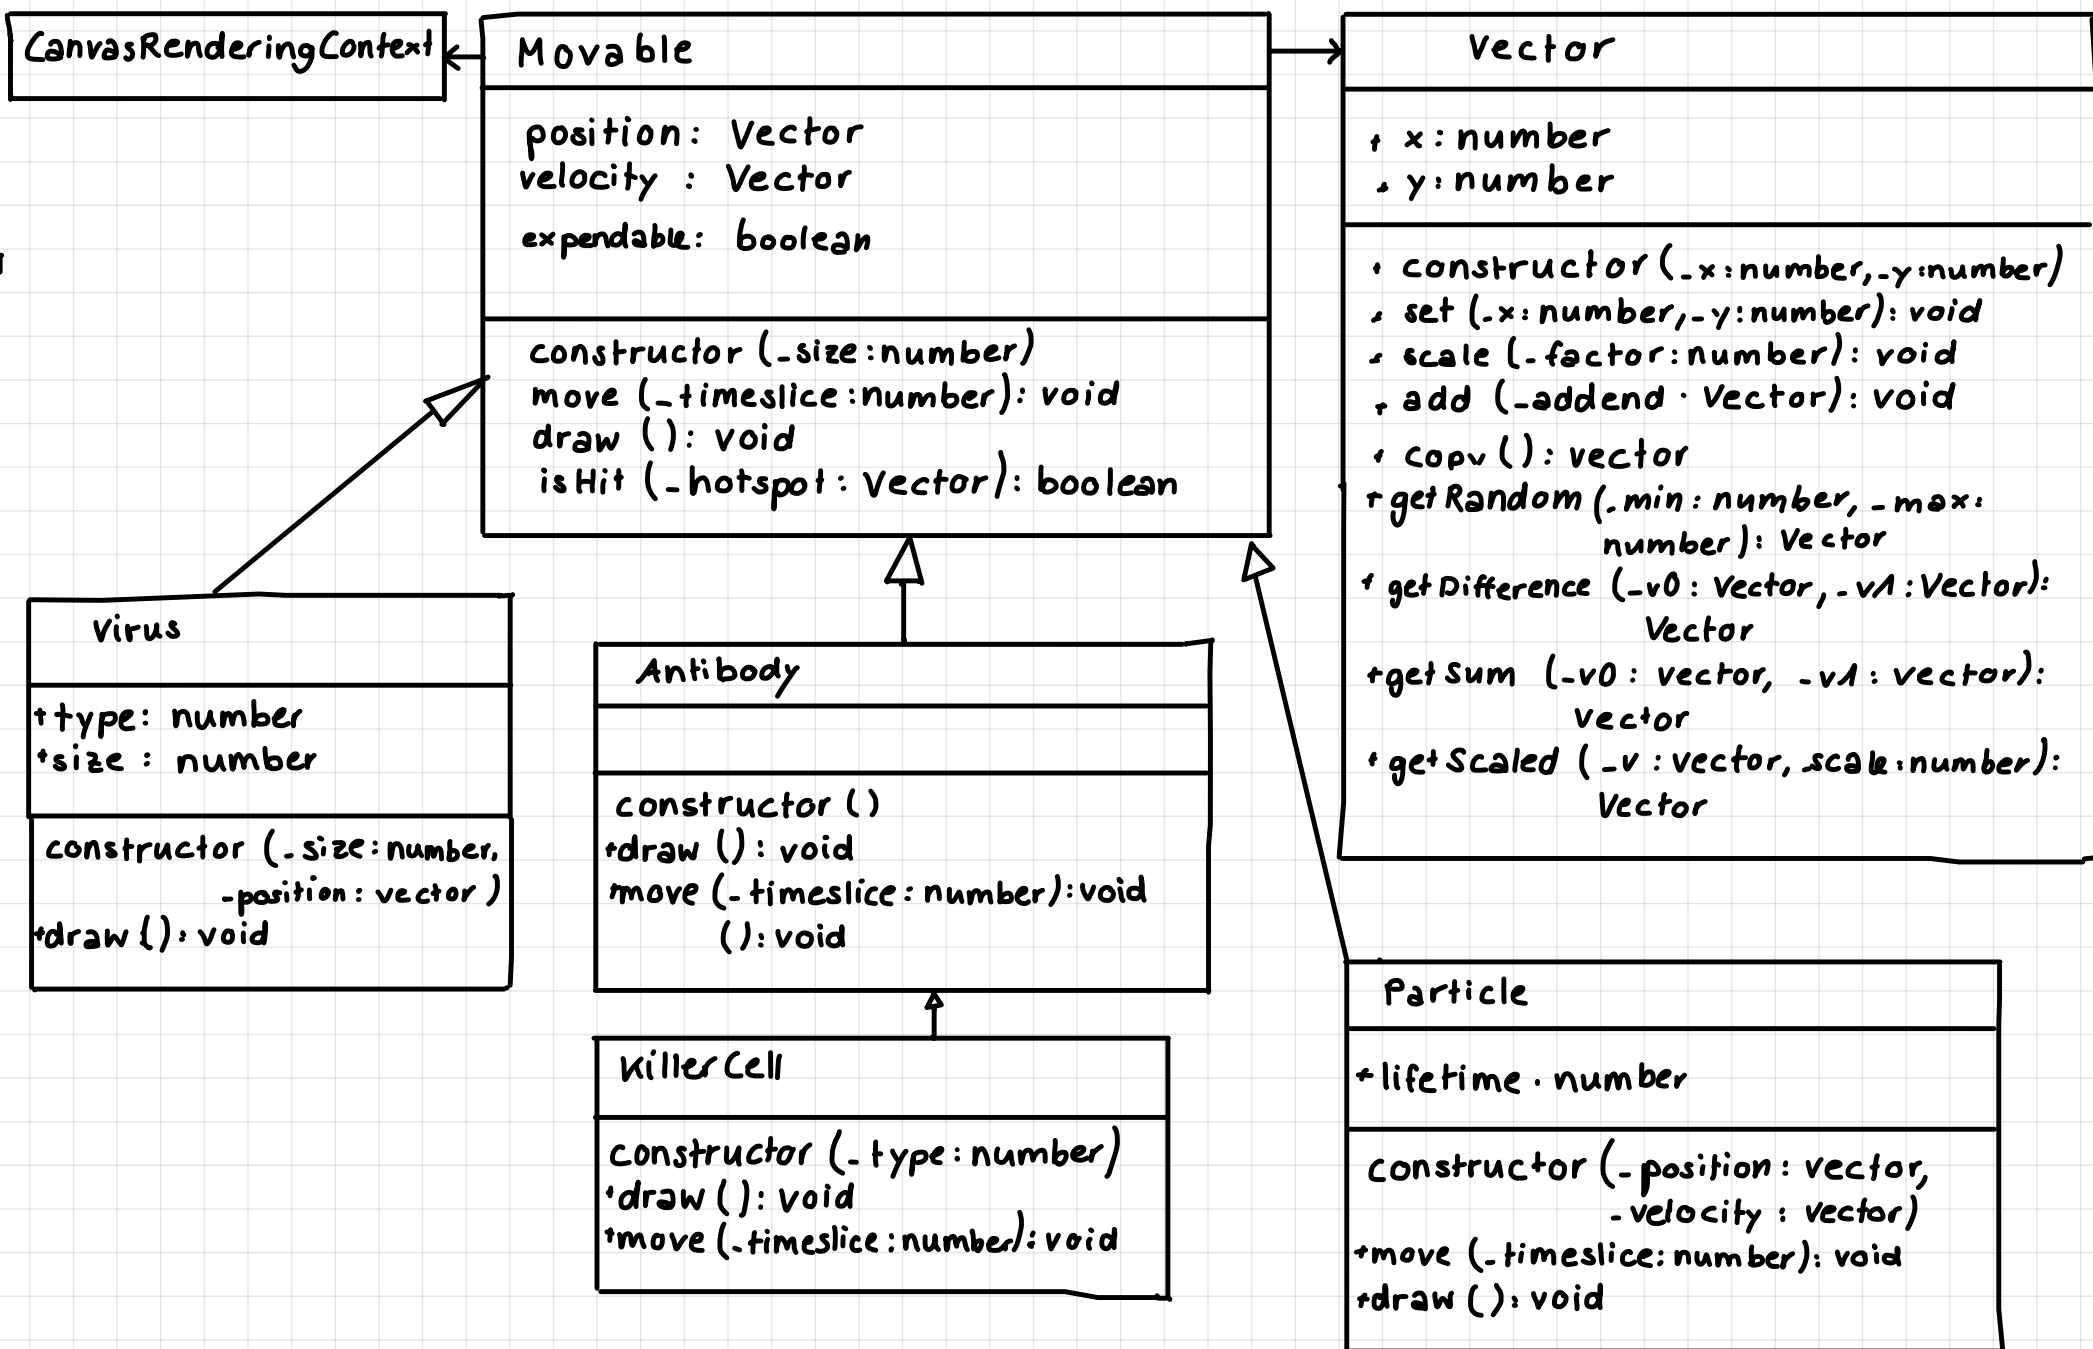 CanvasRenderingContext
Movable
position: Vector
velocity : Vector
expendable: boolean
constructor (_size:number)
move (_timeslice:number): void
draw (): void
isHit (_hotspot: Vector): boolean
Vector
+ x: number
+ y: number
+ constructor (_x:number,_y:number)
+ set (_x:number,_y:number): void
+ scale (_factor:number): void
+ add (_addend : Vector): void
+ copy (): vector
+ getRandom (_min: number, _max:
number): Vector
+ getDifference (_v0: Vector, _v1: Vector):
Vector
+getSum (_v0: vector, _v1: vector):
Vector
+ getScaled (_v: vector, _scale:number):
Vector
Virus
+type: number
+size: number
constructor (_size:number,
_position: vector)
+draw (): void
Antibody
constructor ()
+draw (): void
+move (_timeslice:number):void
(): void
KillerCell
constructor (_type:number)
+draw (): void
+move (_timeslice:number): void
Particle
+ lifetime : number
constructor (_position: vector,
_velocity: vector)
+move (_timeslice:number): void
+draw (): void